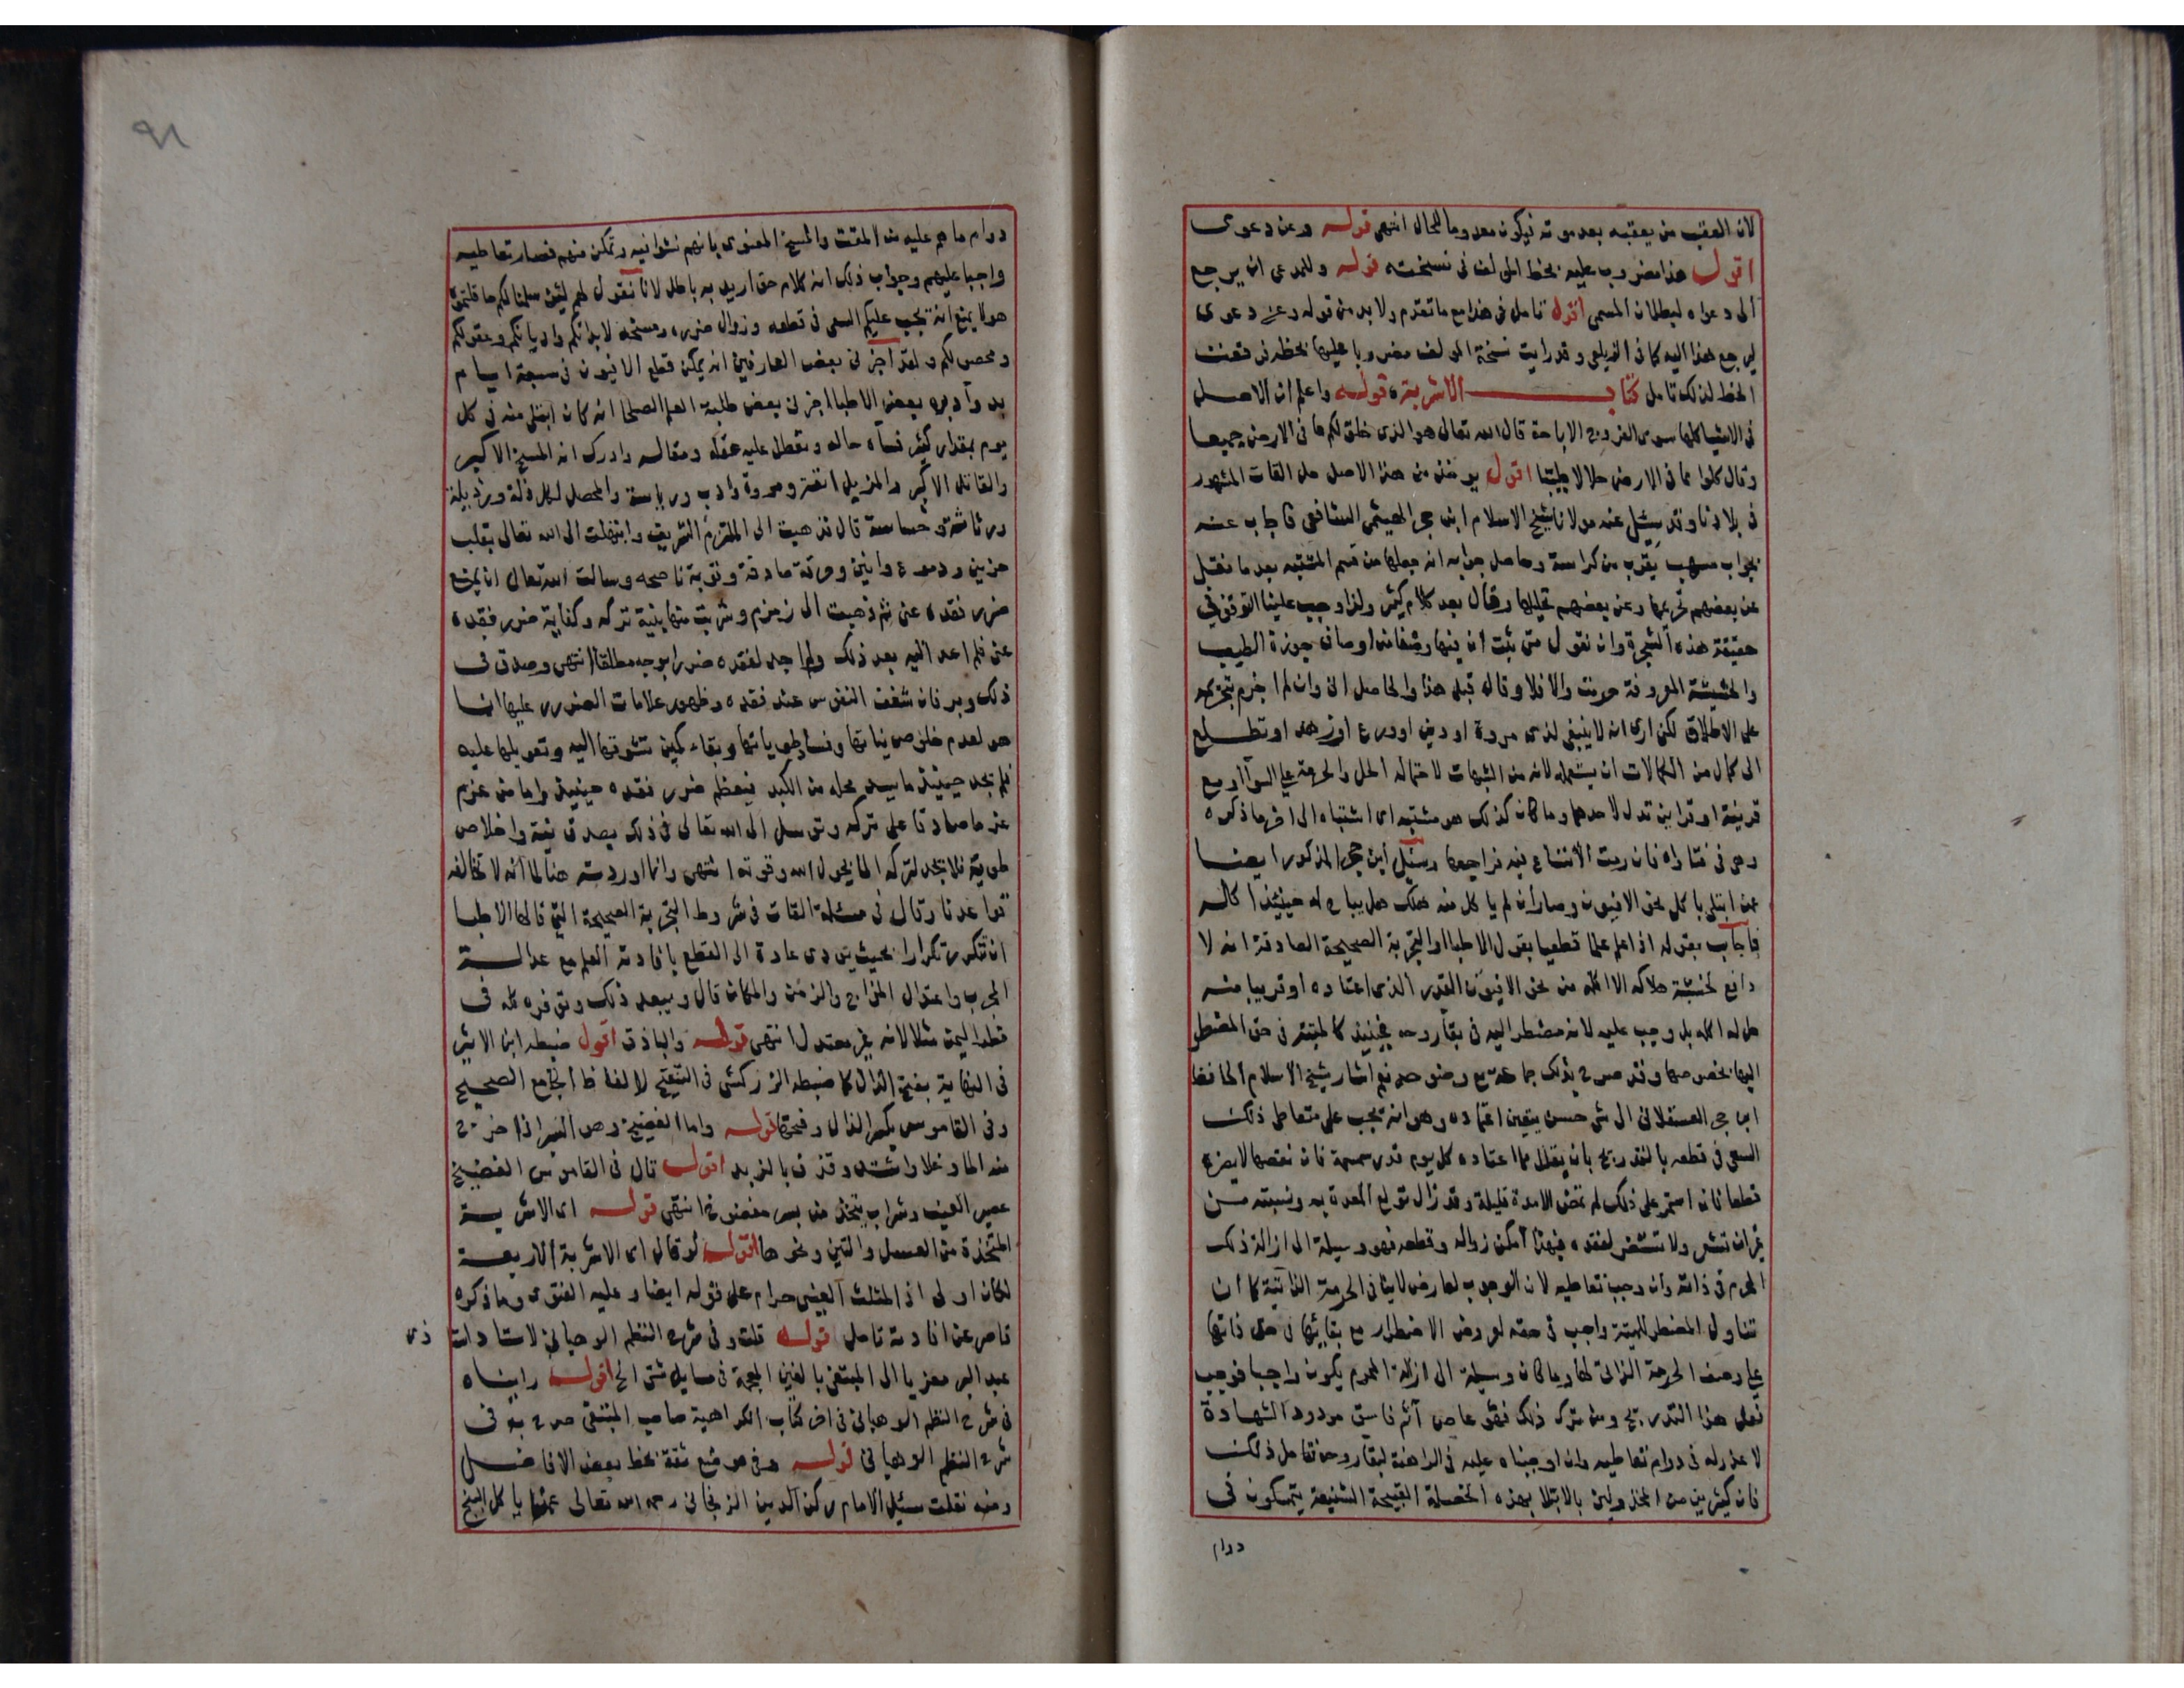 لان العقب من يعقبه بعد موته فيكون معدوما للحال انتهى قوله وعن دعوى
اقول هذا مضروب عليه بخط المولف فى نسخته قوله وللمدعى ان يرجع
الى دعواه لبطلان المسمى اقول تامل فى هذا مع ما تقدم ولا بد من قوله وعن دعوى
ليرجع هذا اليه كما فى الزيلعى وقد رايت نسخة المولف مضروبا عليها بخطه
الخط لذلك تامل كتاب الاشربة قوله واعلم ان الاصل
فى الاشيا كلها سوى الفروج الاباحة قال الله تعالى هو الذى خلق لكم ما فى الارض جميعا
وقال كلوا مما فى الارض حلالا طيبا اقول يوخذ من هذا الاصل حل القات المشهور
فى بلادنا وقد سئل عنه مولانا شيخ الاسلام ابن حجر الهيتمى الشافعى فاجاب عنه
بجواب مسهب يقرب من كراسة وحاصل جوابه انه جعلها من قسم المشتبه بعد ما نقل
عن بعضهم تحريمها وعن بعضهم تحليلها وقال بعد كلام كثير ولذا وجب علينا التوقف فى
حقيقة هذه الشجرة وان نقول متى ثبت ان فيها وصفا من اوصاف جوزة الطيب
والحشيشة المعروفة حرمت والا فلا وقال قبل هذا والحاصل انى وان لم اجزم بتحريمه
على الاطلاق لكن ارى انه لا ينبغى لذى مروة او دين او ورع او زهد او تطلع
الى كمال من الكمالات ان يستعمله لانه من الشبهات لاحتماله الحل والحرمة على السوآ او مع
قرينة او قراين تدل لاحدهما وما كان كذلك هو مشتبه اى اشتباه الى اخر ما ذكره
وهو فى فتاواه فان رمت الانتفاع فيه فراجعها وسئل ابن حجر المذكور ايضا
عمن ابتلى باكل نحو الافيون وصار ان لم ياكل منه هلك هل يباح له حينئذ اكله
فاجاب بقوله اذا علم علما قطعيا بقول الاطبا او التجربة الصحيحة الصادقة انه لا
دافع لخشية هلاكه الا اكله من نحو الافيون القدر الذى اعتاده او قريبا منه
حل له اكله بل وجب عليه لانه مضطر اليه فى بقآ روحه فحينئذ كالميتة فى حق المضطر
اليها بخصوصها وقد صرح بذلك جماعة مع وضوحه نعم اشار شيخ الاسلام الحافظ
ابن حجر العسقلانى الى شى حسن يتعين اعتماده وهو انه يجب على متعاطى ذلك
السعى فى قطعه بالتدريج بان يقلل مما اعتاده كل يوم قدر سمسمة فان نقصها لا يضره
قطعا فان استمر على ذلك لم تمض الا مدة قليلة وقد زال تولع المعدة به ونسيته من
غير ان تشعر ولا تستضر لفقده فبهذا امكن زواله وقطعه فهو وسيلة الى ازالة ذلك
المحرم فى ذاته وان وجب تعاطيه لان الوجوب لعارض لا ينافى الحرمة الذاتية كما ان
تناول المضطر للميتة واجب فى حقه لعروض الاضطرار مع بقائها فى حق ذاتها
على وصف الحرمة الذاتى لها وما كان وسيلة الى ازالة المحرم يكون واجبا فوجب
فعل هذا التدريج ومن ترك ذلك فهو عاص آثم فاسق مردود الشهادة
لا عذر له فى دوام تعاطيه وان اوجبناه عليه فى الراهنة لبقا روحه تامل ذلك
فان كثيرين من المخذولين بالابتلا بهذه الخصلة القبيحة الشنيعة يتمسكون فى
دوام
٩١
دوام ما هم عليه من المقت والمسخ المعنوى بانهم نشوا فيه وتمكن منهم فصار تعاطيه
واجبا عليهم وجواب ذلك انه كلام حق اريد به باطل لانا نقول لهم لئن سلمنا لكم ما قلتموه
هو لا يمنع انه يجب عليكم السعى فى قطعه وزوال ضرره ومسخه لابدانكم واديانكم وعقولكم
ولقد اخبرنى بعض العارفين انه يمكن قطع الافيون فى سبعة ايام
بدوآ دبره بعض الاطبا اخبرنى بعض طلبة العلم الصلحا انه كان ابتلى منه فى كل
يوم بمقدار كثير فسآ حاله وتعطل عليه عقله ومقاله وادرك انه المسخ الاكبر
والقاتل الاكبر والمزيل لنفة ومروة وادب ورياسة والمحصل لكل ذلة ورذيلة
ورثاثة وخساسة قال فذهبت الى الملتزم الشريف وابتهلت الى الله تعالى بقلب
حزين ودموع وانين وتوبة ناصحة وسالت الله تعالى ان يمنع
ضرر فقده عنى ثم ذهبت الى زمزم وشربت منها بنية تركه وكفاية ضرر فقده
عنى فلم اعد اليه بعد ذلك ولم اجد لفقده ضررا بوجه مطلقا انتهى وصدق فى
ذلك وبر فان شغف النفوس عند فقده وظهور علامات الضرر عليها انما
هو لعدم خلوص نياتها وفساد طوياتها وبقاء كمين تشوقها اليه وتعويلها عليه
فلم تجد حينئذ ما يسد محله من الكبد فيعظم ضرر فقده حينئذ واما من عزم
عزما صادقا على تركه وتوسل الى الله تعالى فى ذلك بصدق نية واخلاص
طوية فلا يجد لتركه الما بحول الله وقوته انتهى وانما اوردته هنا لما انه لا تخالفه
قواعدنا وقال فى مسئلة القات فى شروط التجربة الصحيحة التى قالها الاطبا
ان تتكرر تكرارا بحيث يودى عادة الى القطع بافادته العلم مع عدالة
المجرب واعتدال المزاج والزمن والمكان قال ويبعد ذلك وتوفره كله فى
قطر اليمن مثلا لانه غير معتدل انتهى قوله والباذق اقول ضبطه ابن الاثير
فى النهاية بفتح الذال كما ضبطه الزركشى فى التنقيح لالفاظ الجامع الصحيح
وفى القاموس بكسر الذال وفتحها قوله واما الفضيخ وهو البسر اذا خرج
منه الما وغلا واشتد وقذف بالزبد اقول قال فى القاموس الفضيخ
عصير العنب وشراب يتخذ من بسر مفضوخ انتهى قوله اى الاشربة
المتخذة من العسل والتين ونحوها اقول لو قال اى الاشربة الاربعة
لكان اولى اذ المثلث العنبى حرام على قوله ايضا وعليه الفتوى وما ذكره
قاصر عن افادته تامل قوله قلت وفى شرح النظم الوهبانى لاستاد ذى
عبد البر معزيا الى المبتغى بالغين المعجمة فى مسايل شتى الخ اقول رايناه
فى شرح النظم الوهبانى فى اخر كتاب الكراهية صاحب المبتغى صرح به فى
شرح النظم الوهبانى قوله وفى موضع ثقة بخط بعض الافاضل
ومنه نقلت سئيل الامام ركن الدين الزنجانى رحمه الله تعالى عمن ياكل البنج